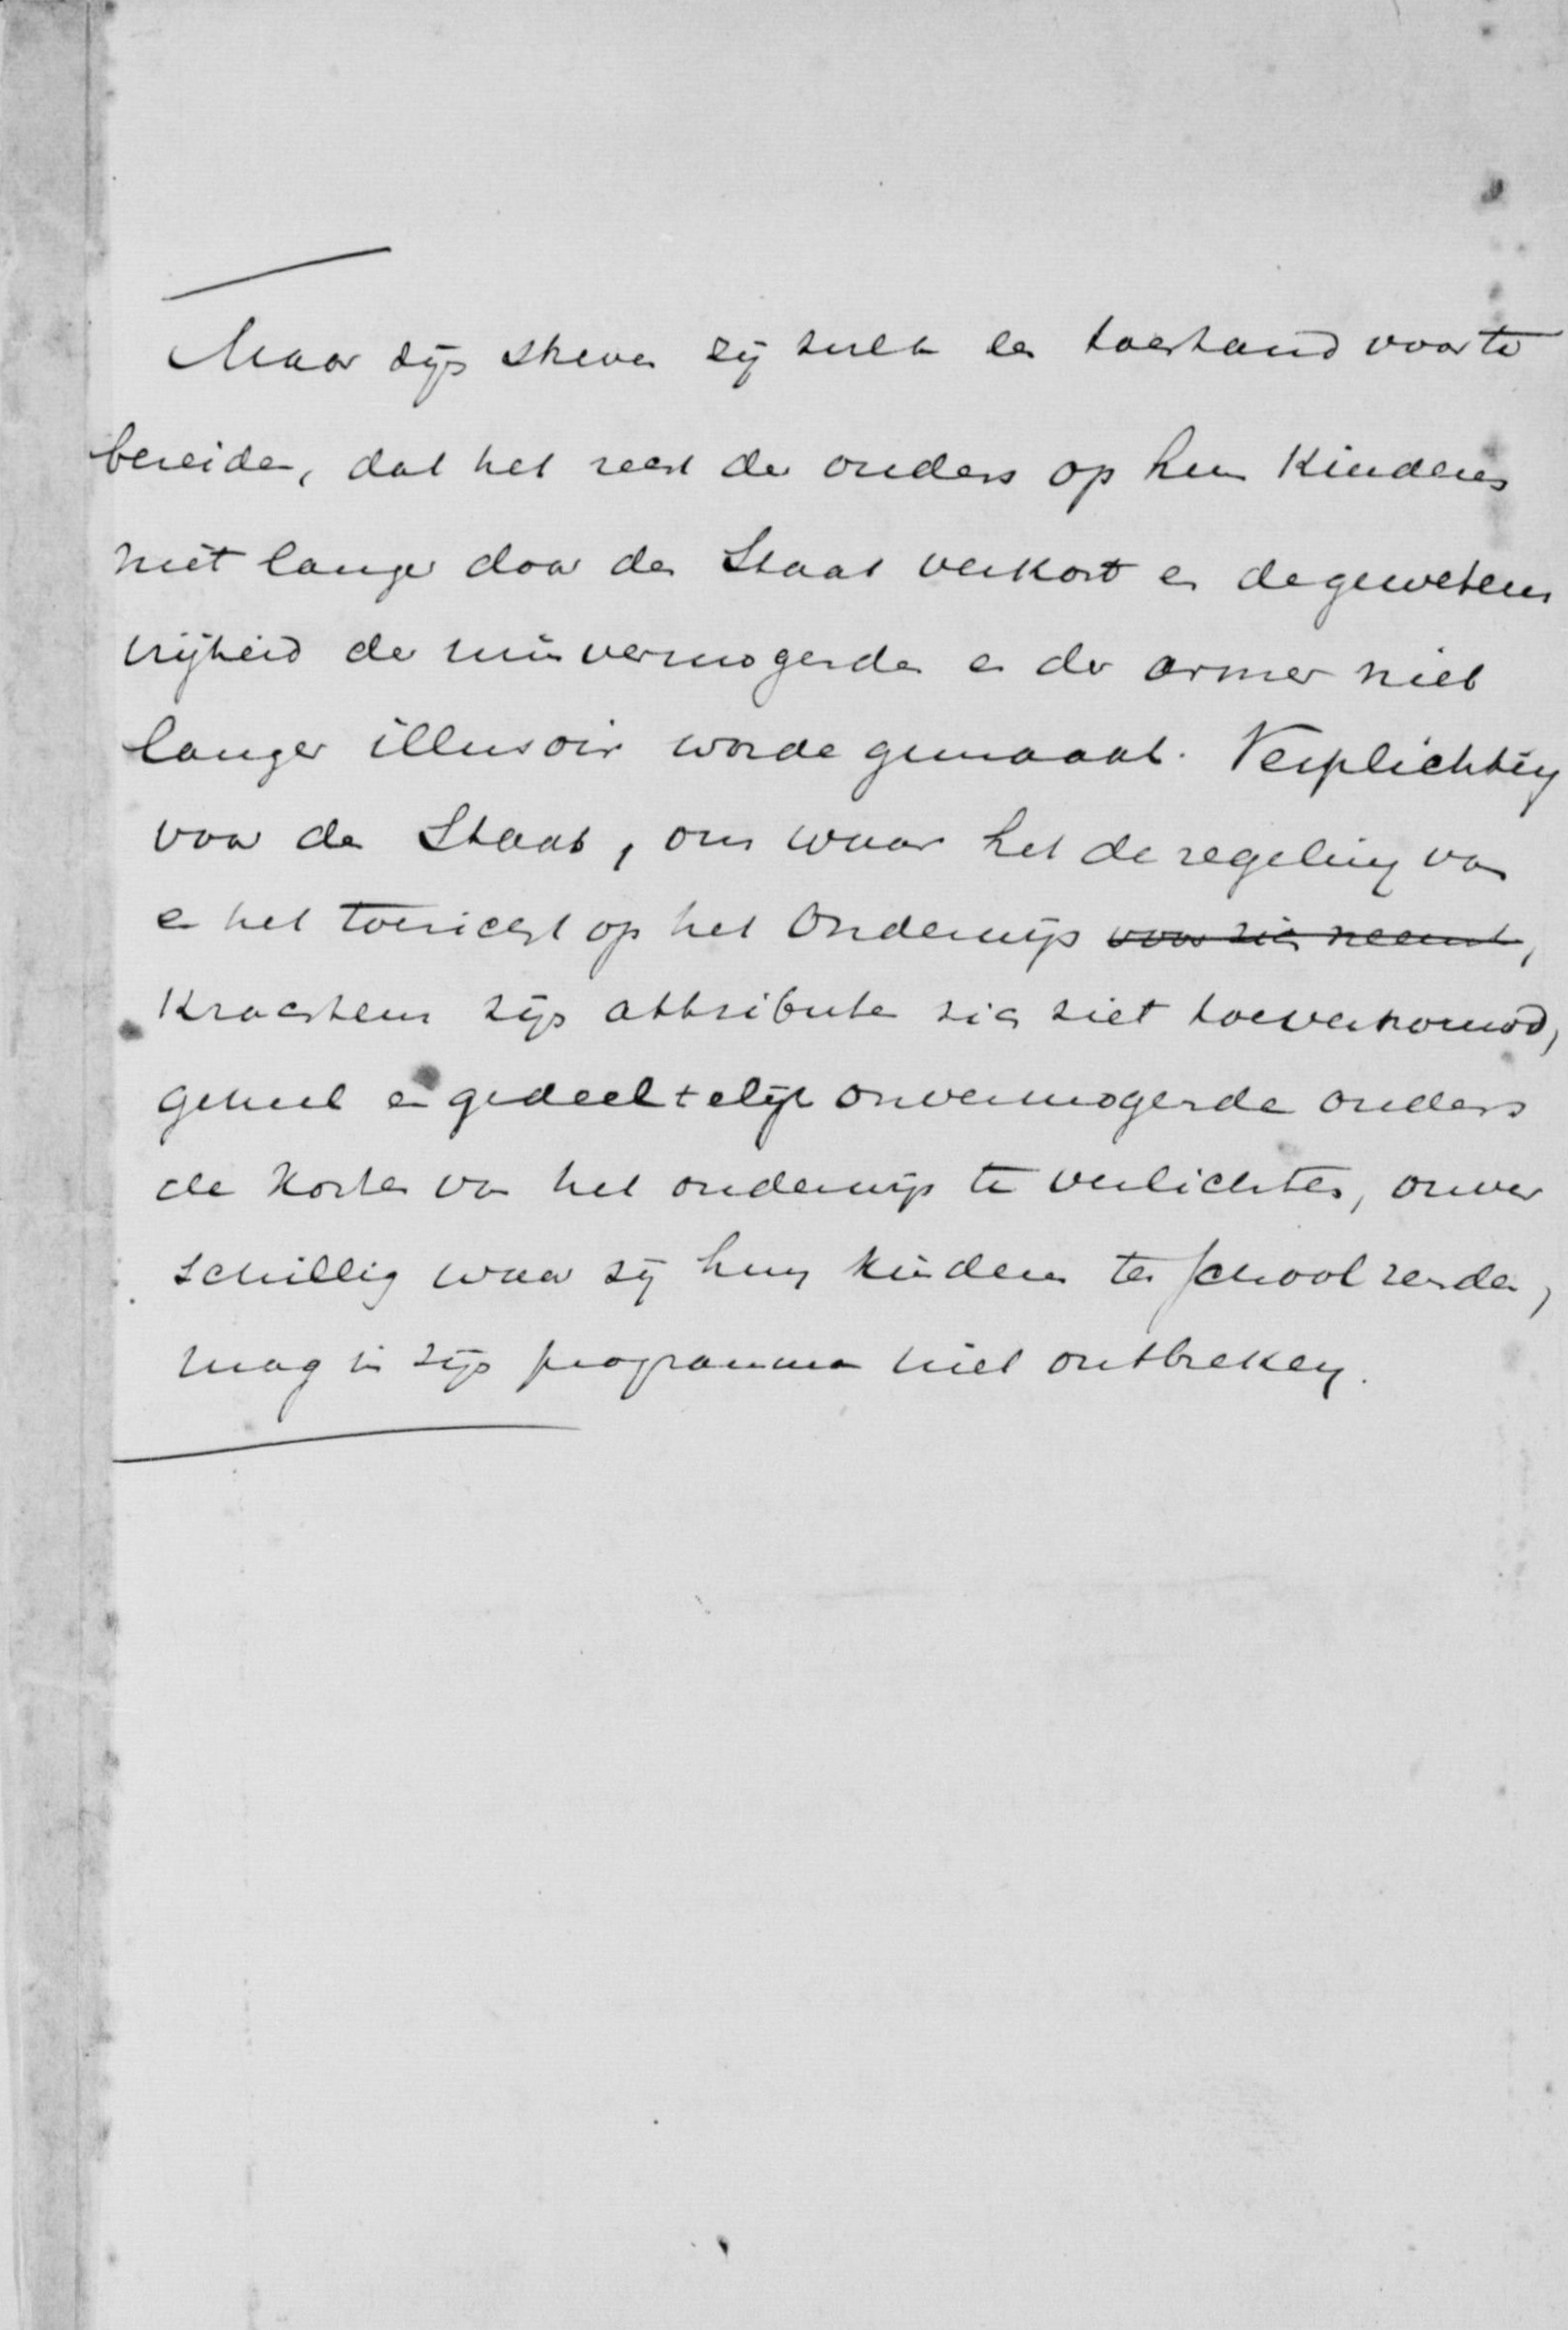 Maar zijn streven zij zulk een toestand voor te
bereiden, dat het recht der ouders op hun Kinderen
niet langer door den Staat verkort en de gewetens
vrijheid der min vermogenden en der armen niet
langer illusoir worde gemaakt. Verplichting
voor den Staat, om waar hij de regeling van
en het toezicht op het Onderwijs ~~voor zich neemt~~,
Krachtens zijn attributen zich ziet toevertrouwd,
geheel en gedeeltelijk onvermogende ouders
de kosten van het onderwijs te verlichten, onver
schillig waar zij hun kinderen ter school zenden,
mag in zijn programma niet ontbreken.